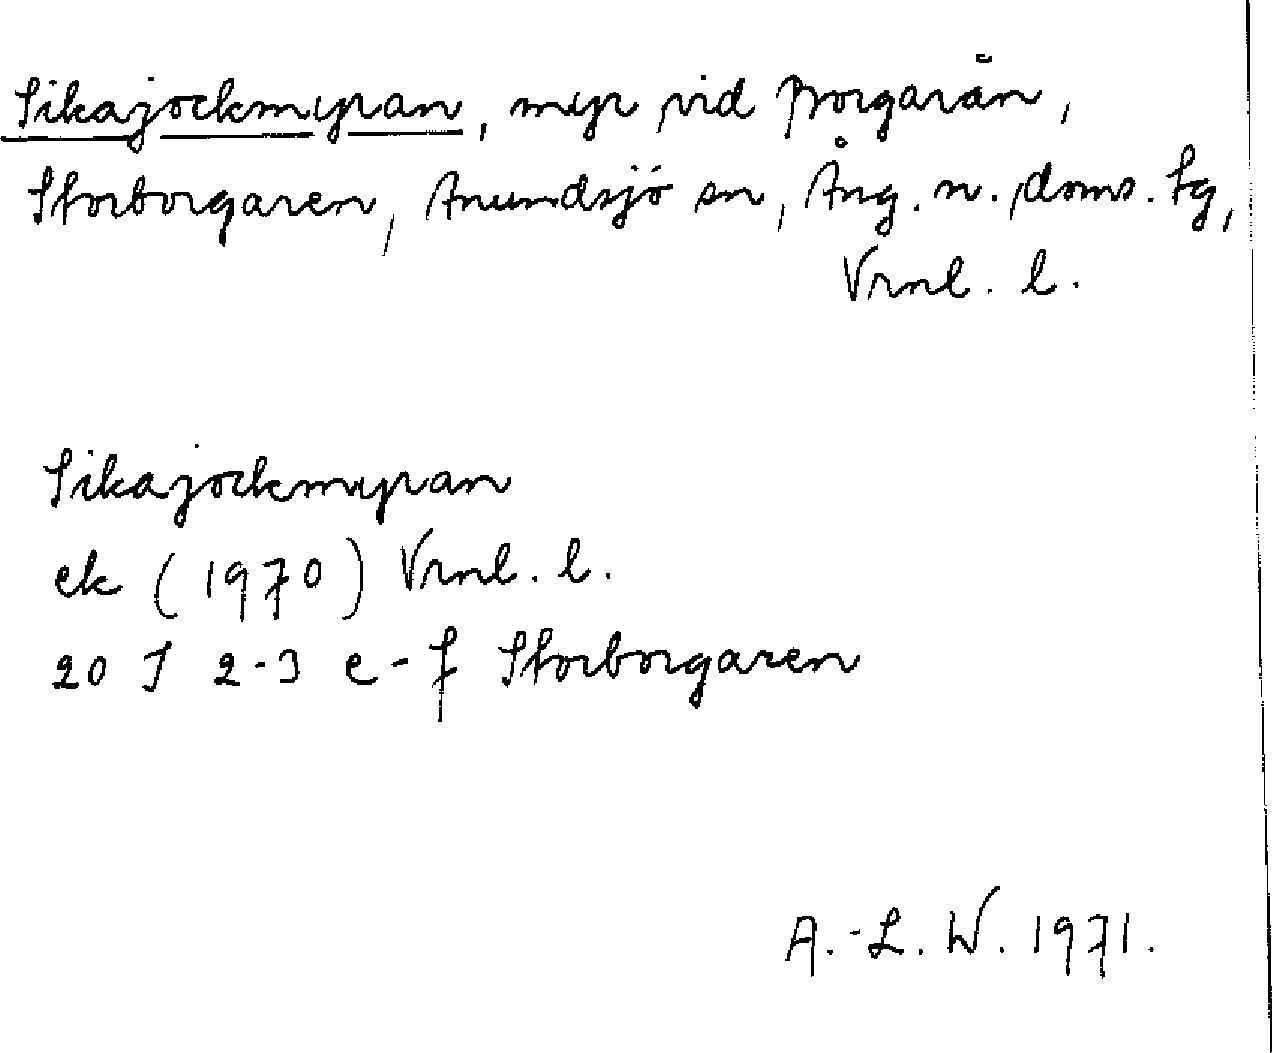 Sikajockmyran, myr vid Borgarån,
Storborgaren, Anundsjö sn, Ång. n. doms. sg,
Vrnl. l.
Sikajockmyran
ek (1970) Vrnl. l.
20 J 2-3 e-f Storborgaren
A.-L. W. 1971.